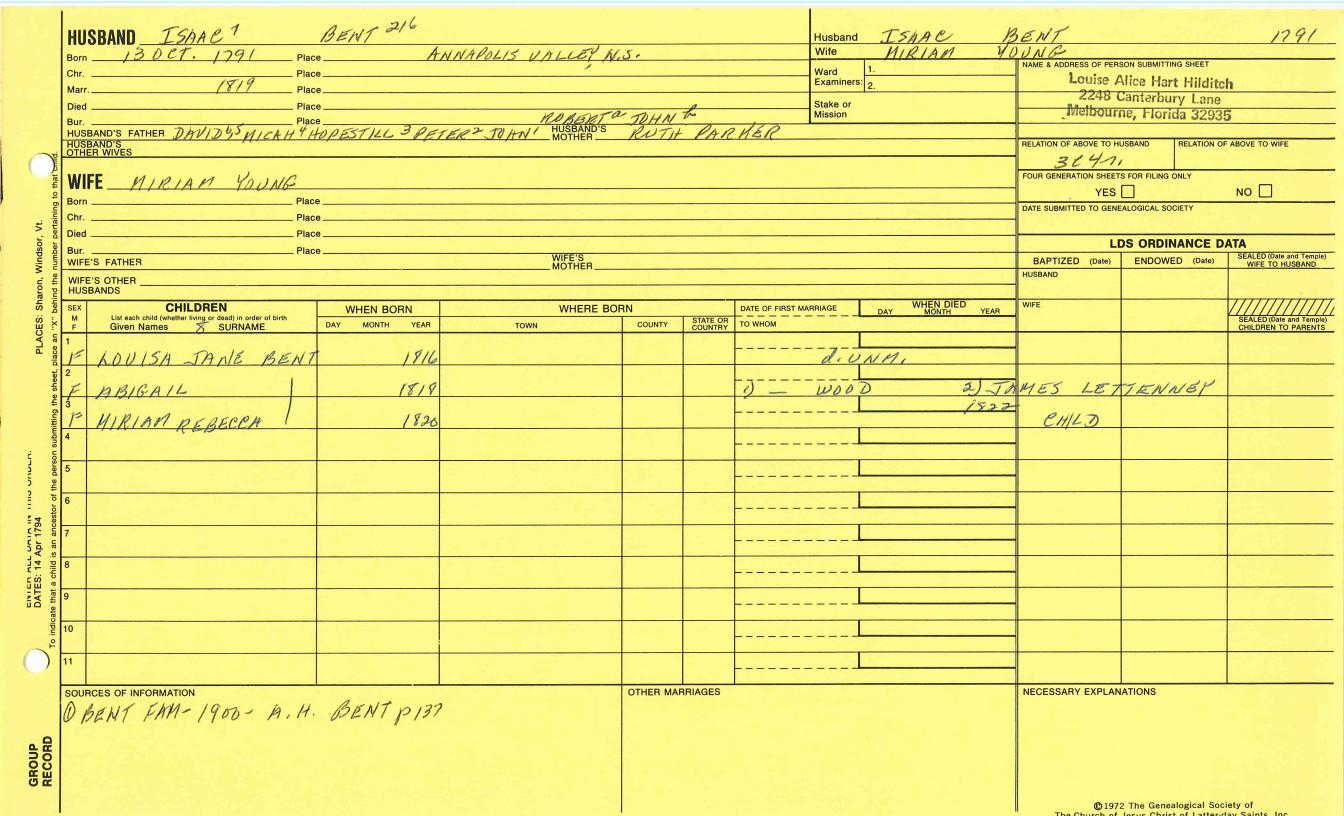 HUSBAND ISAAC 7 BENT 216
Born 13 OCT. 1791 Place ANNAPOLIS VALLEY, N.S.
Chr. Place
Marr. 1819 Place
Died Place
Bur. Place
ROBERT a JOHN b
HUSBAND'S FATHER DAVID 6 5 MICAH 4 HOPESTILL 3 PETER 2 JOHN 1 HUSBAND'S MOTHER RUTH PARKER
HUSBAND'S OTHER WIVES
WIFE MIRIAM YOUNG
Born Place
Chr. Place
Died Place
Bur. Place
WIFE'S FATHER WIFE'S MOTHER
WIFE'S OTHER HUSBANDS
Husband ISAAC BENT 1791
Wife MIRIAM YOUNG
Ward Examiners: 1.
2.
Stake or Mission
NAME & ADDRESS OF PERSON SUBMITTING SHEET
Louise Alice Hart Hilditch
2248 Canterbury Lane
Melbourne, Florida 32935
RELATION OF ABOVE TO HUSBAND RELATION OF ABOVE TO WIFE
3C4r.
FOUR GENERATION SHEETS FOR FILING ONLY
YES NO
DATE SUBMITTED TO GENEALOGICAL SOCIETY
LDS ORDINANCE DATA
BAPTIZED (Date) ENDOWED (Date) SEALED (Date and Temple) WIFE TO HUSBAND
HUSBAND
WIFE
SEALED (Date and Temple) CHILDREN TO PARENTS
SEX M F
CHILDREN
List each child (whether living or dead) in order of birth
Given Names 8 SURNAME
WHEN BORN
DAY MONTH YEAR
WHERE BORN
TOWN COUNTY STATE OR COUNTRY
DATE OF FIRST MARRIAGE
TO WHOM
WHEN DIED
DAY MONTH YEAR
1 F LOUISA JANE BENT 1816 d. UNM.
2 F ABIGAIL 1819 1) — WOOD 2) JAMES LETTENNEY
3 F MIRIAM REBECCA 1820 1822 CHILD
4
5
6
7
8
9
10
11
SOURCES OF INFORMATION
① BENT FAM- 1900- A.H. BENT p 137
OTHER MARRIAGES
NECESSARY EXPLANATIONS
©1972 The Genealogical Society of
The Church of Jesus Christ of Latter-day Saints, Inc.
PLACES: Sharon, Windsor, Vt.
ENTER ALL DATA IN THIS ORDER:
DATES: 14 Apr 1794
To indicate that a child is an ancestor of the person submitting the sheet, place an "X" behind the number pertaining to that child.
GROUP RECORD